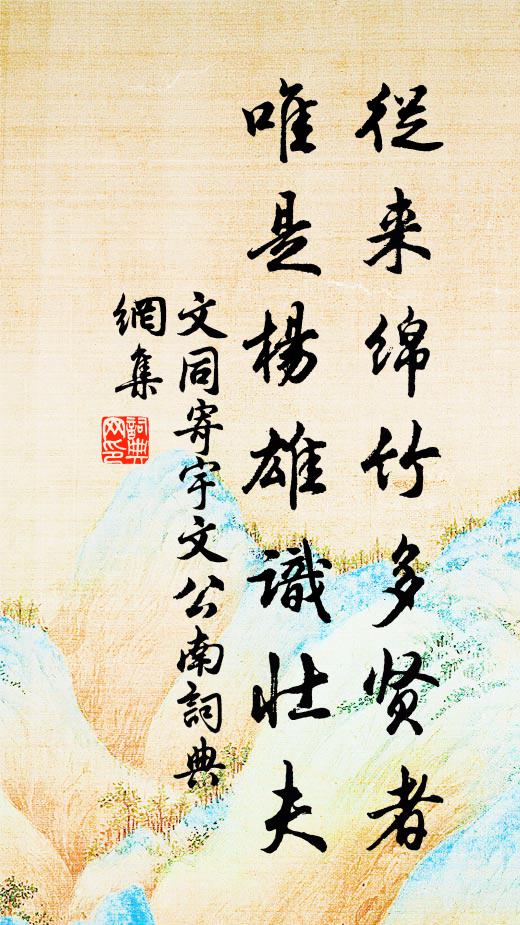 從来绵竹多贤者
唯是楊雄識壮夫
文同寄宇文公南詞典
網集
詞典
网印